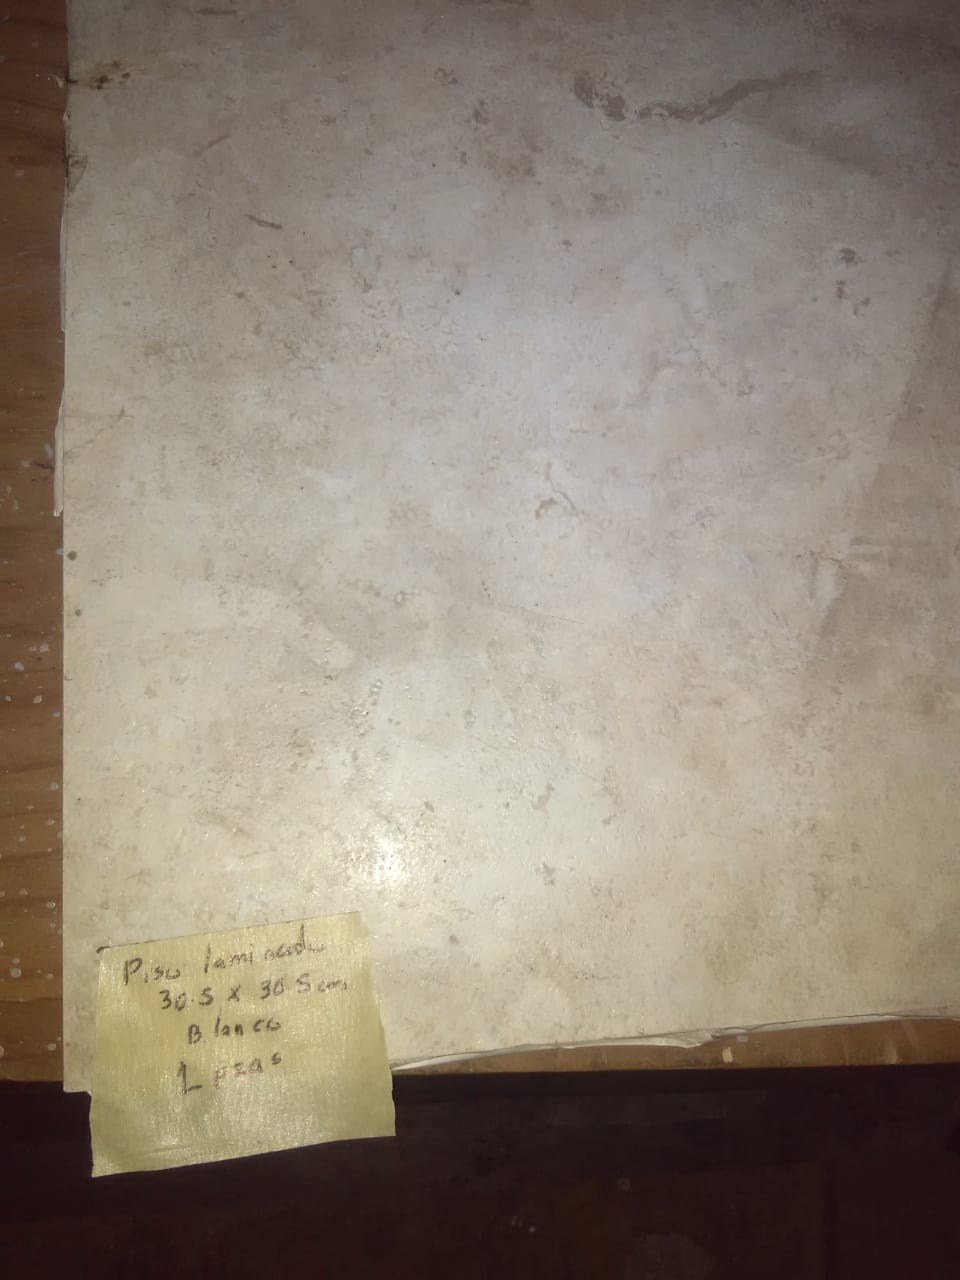 Piso laminado
30.5 x 30.5 cm
Blanco
1 pzas